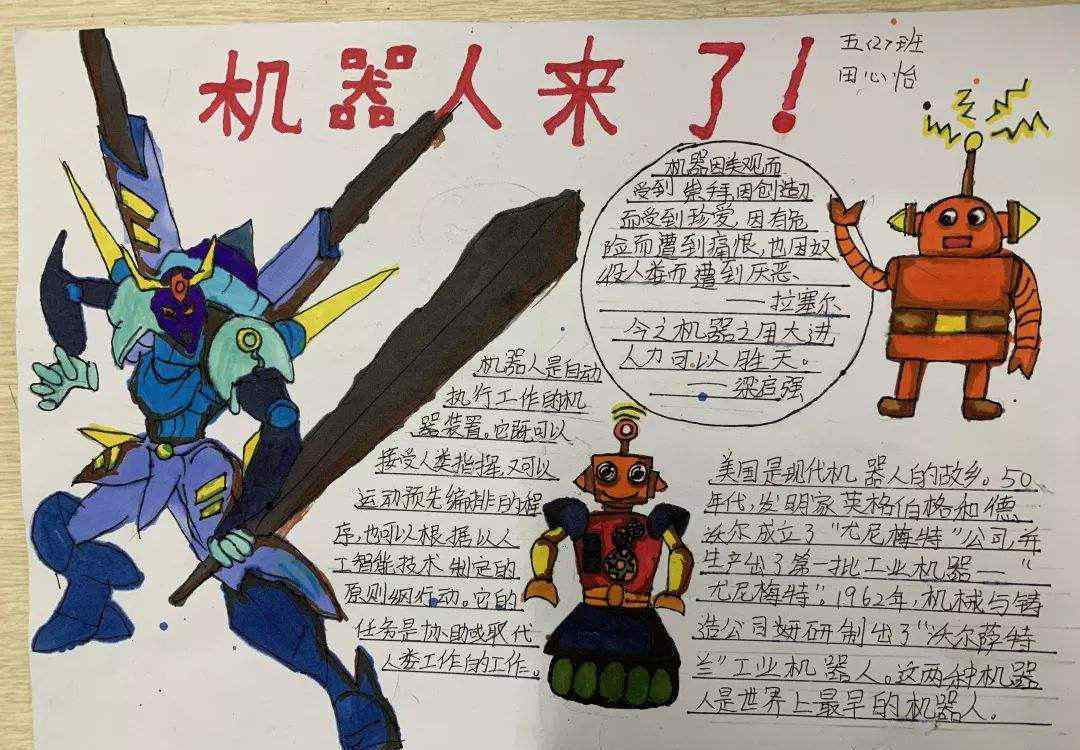 机器人来了!
五(2)班
田心怡
机器因美观而
受到崇拜,因创造力
而受到珍爱,因有危
险而遭到痛恨,也因奴
役人类而遭到厌恶、
——拉塞尔
今之机器之用大进
人力可以胜天。
——梁启强
机器人是自动
执行工作的机
器装置。它既可以
接受人类指挥,又可以
运动预先编排的程
序,也可以根据以人
工智能技术制定的
原则纲行动。它的
任务是协助或取代
人类工作的工作。
美国是现代机器人的故乡。50
年代,发明家英格伯格和德
沃尔成立了“尤尼梅特”公司,并
生产出了第一批工业机器一“
尤尼梅特”。1962年,机械与铸
造公司研制出了“沃尔萨特
兰”工业机器人。这两种机器
人是世界上最早的机器人。